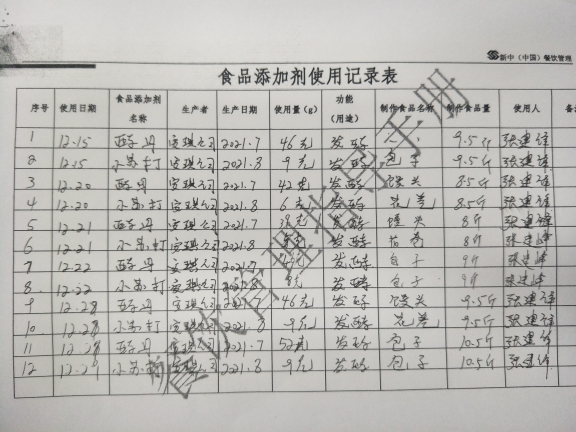 新中（中国）餐饮管理
食品添加剂使用记录表
序号 使用日期 食品添加剂名称 生产者 生产日期 使用量（g） 功能（用途） 制作食品名称 制作食品量 使用人 备
1 12.15 酵母 安琪公司 2021.7 46克 发酵 9.5斤 张建锋
2 12.15 小苏打 安琪公司 2021.8 9克 发酵 包子 9.5斤 张建锋
3 12.20 酵母 安琪公司 2021.7 42克 发酵 馒头 8.5斤 张建锋
4 12.20 小苏打 安琪公司 2021.8 6克 发酵 花卷 8.5斤 张建锋
5 12.21 酵母 安琪公司 2021.7 发酵 馒头 8斤 张建锋
6 12.21 小苏打 安琪公司 2021.8 发酵 花卷 8斤 张建锋
7 12.22 酵母 安琪公司 2021.7 发酵 包子 9斤 张建锋
8 12.22 小苏打 安琪公司 发酵 包子 9斤 张建锋
9 12.28 酵母 安琪公司 2021.7 46克 发酵 馒头 9.5斤 张建锋
10 12.28 小苏打 安琪公司 2021.8 9克 发酵 花卷 9.5斤 张建锋
11 12.28 酵母 安琪公司 2021.7 发酵 包子 10.5斤 张建锋
12 12.29 小苏打 安琪公司 2021.8 9克 发酵 包子 10.5斤 张建锋